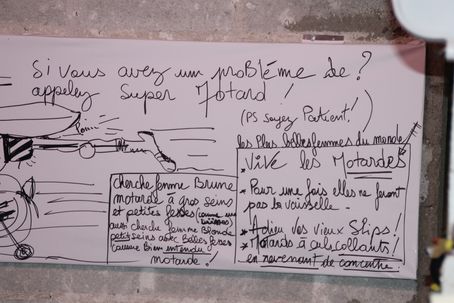 Si vous avez un problème de ?
appelez Super Motard !
(PS soyez Patient !)
les Plus belles femmes du monde
VIVE les Motardes
* Pour une fois elles ne feront
pas la vaisselle.
* Adieu vos vieux Slips !
* Motards à culs collants !
en revenant de concentre
cherche femme Brune
motarde à gros seins
et petites fesses
aussi cherche femme Blonde
petit seins avec Belles fesses
comme Bien entendu
motarde !